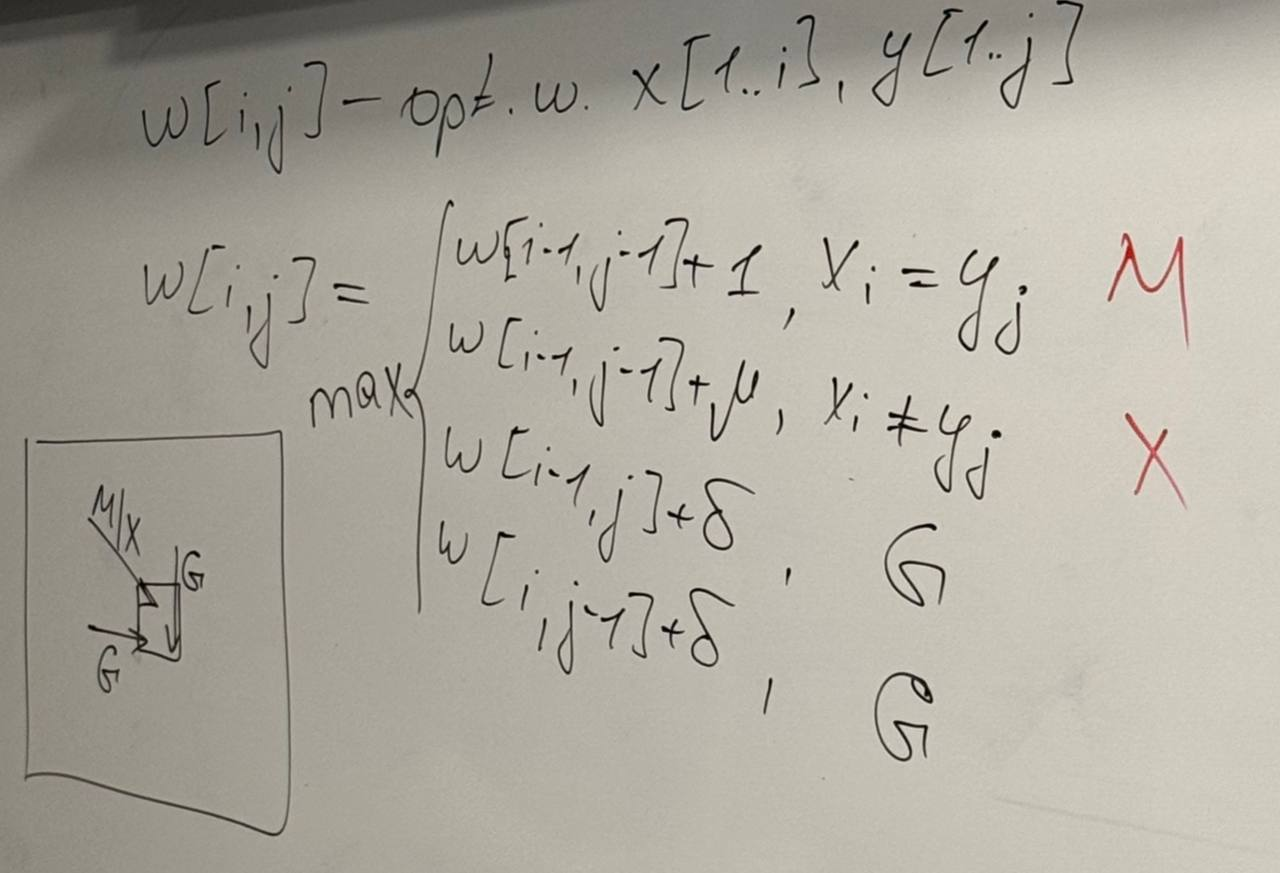 w[i,j] – opt. w. x[1..i], y[1..j]
w[i,j] = max{
w[i-1,j-1]+1, xi = yj M
w[i-1,j-1]+μ, xi ≠ yj X
w[i-1,j]+δ, G
w[i,j-1]+δ, G
M/X
G
G